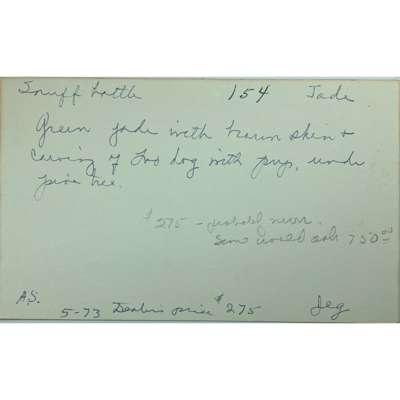 Snuff bottle 154 Jade
Green jade with brown skin +
carving of foo dog with pups, under
pine tree.
$275 - probably never.
Sam would ask 750.00
A.S.
5-73 Dealers price $275